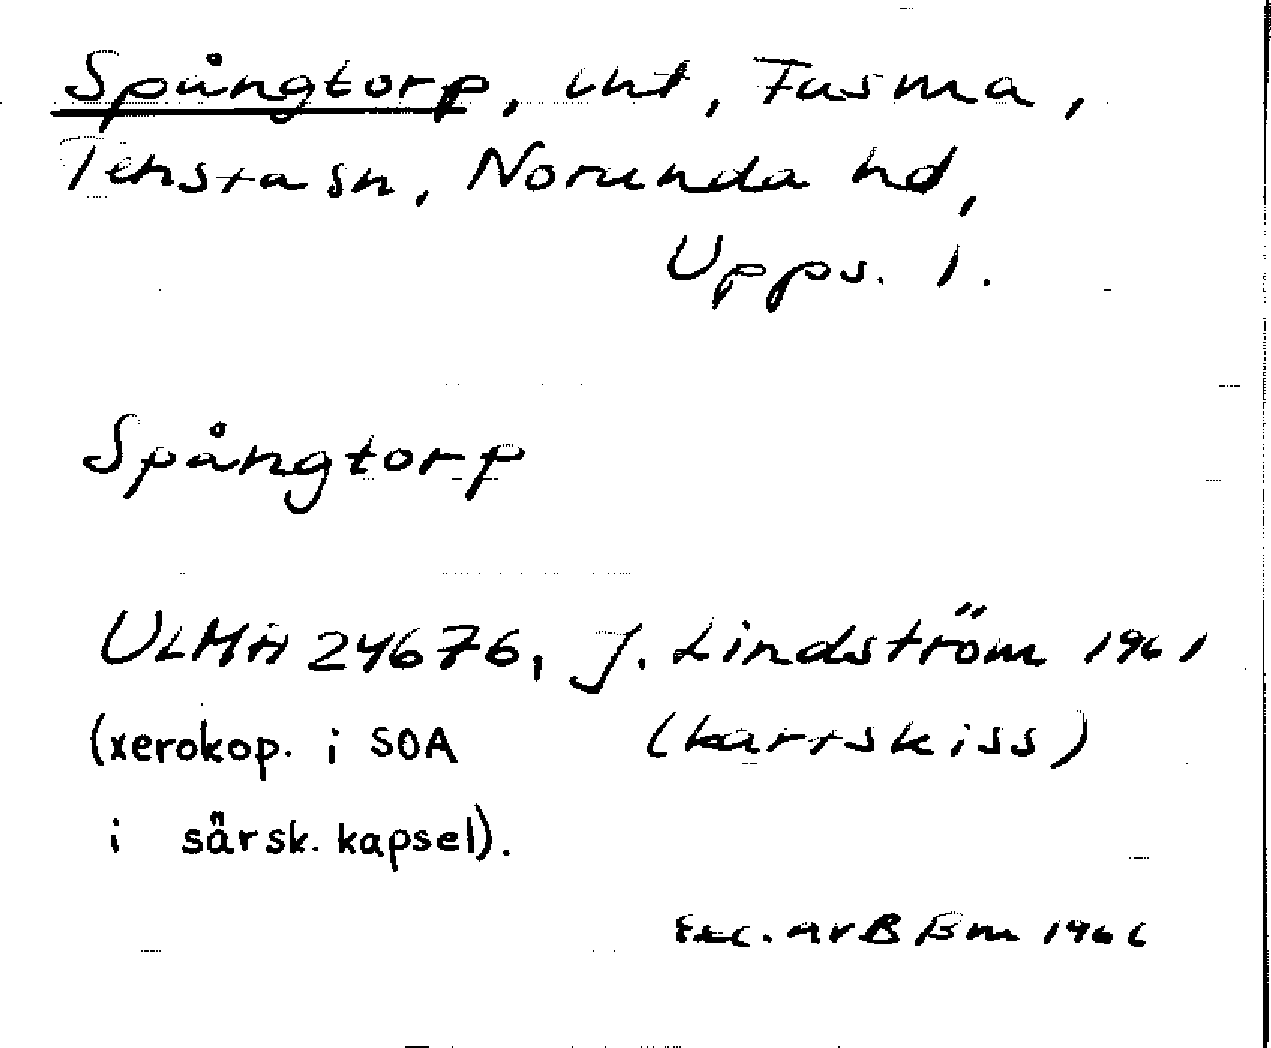 Spångtorp, unt, Fasma,
Tensta sn, Norunda hd,
Upps. l.
Spångtorp
ULMA 24676, J. Lindström 1961
(xerokop. i SOA (kartskiss)
i särsk. kapsel).
Exc. av B Bm 1966